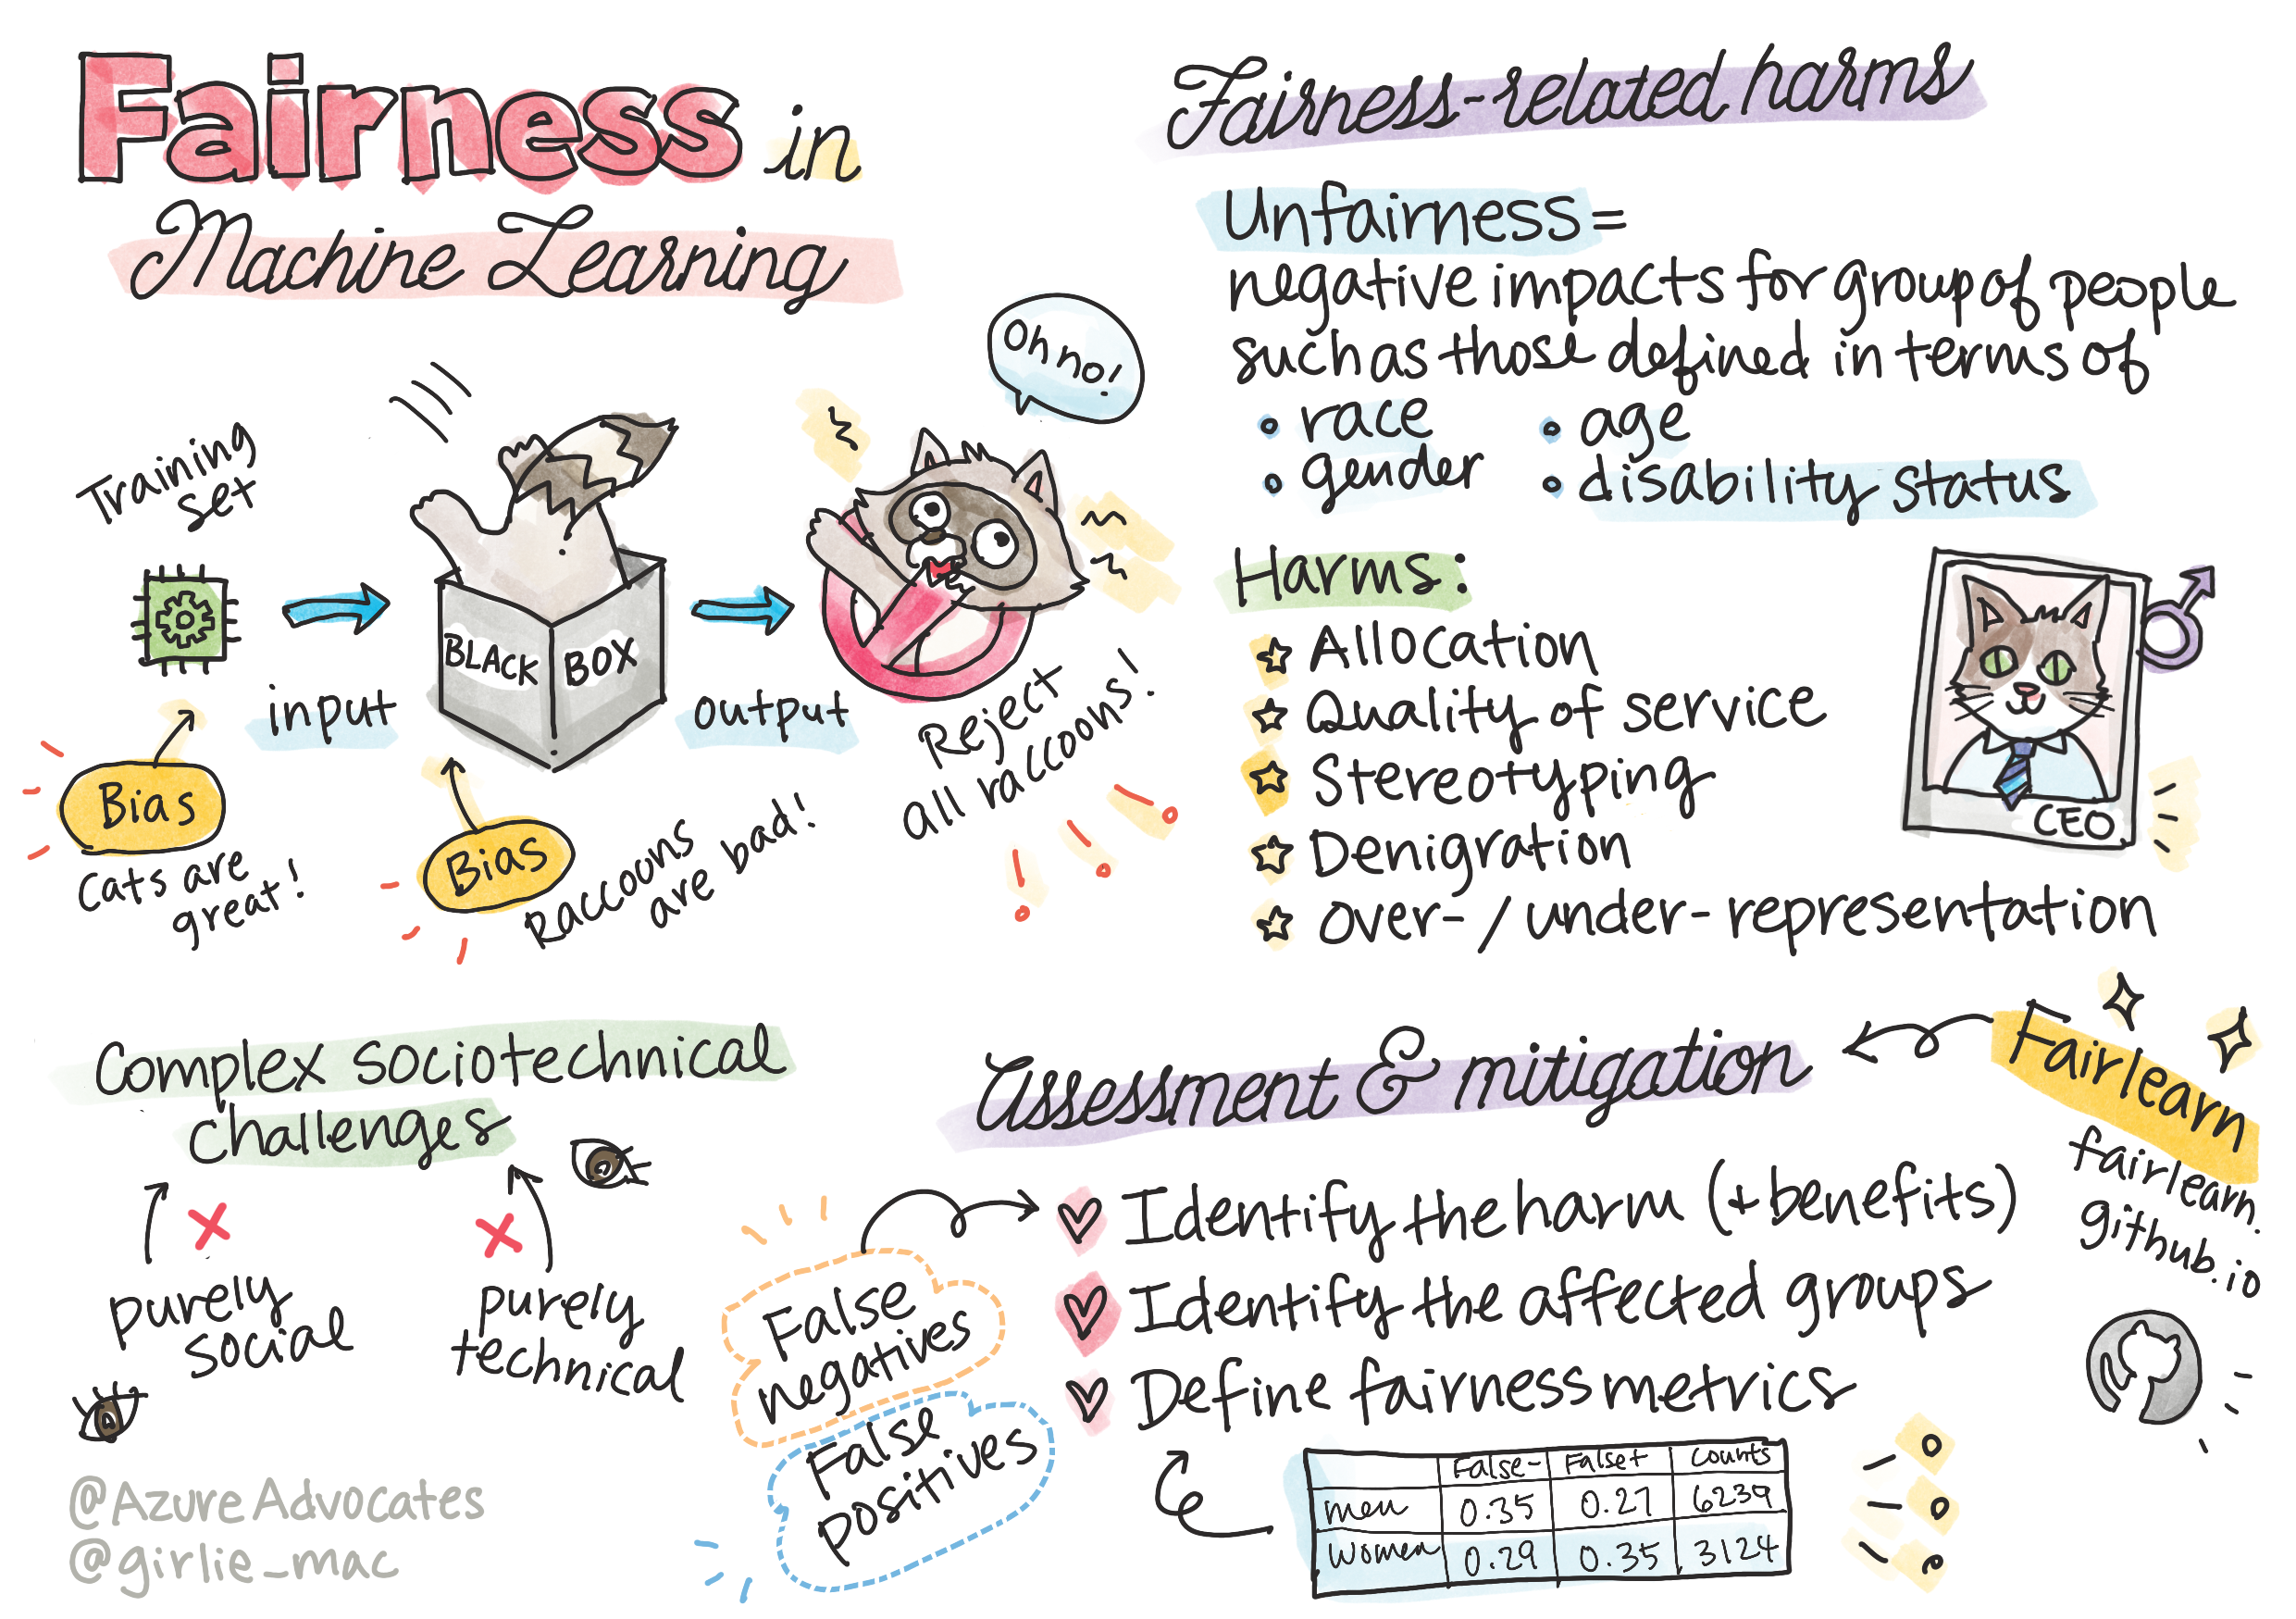 Fairness in
Machine Learning
Training
set
input
BLACK BOX
output
Oh no!
Reject
all raccoons!
Bias
Cats are
great!
Bias
Raccoons
are bad!
Fairness-related harms
Unfairness =
negative impacts for group of people
such as those defined in terms of
• race
• age
• gender
• disability status
Harms:
Allocation
Quality of service
Stereotyping
Denigration
over- / under- representation
CEO
Complex sociotechnical
challenges
purely
social
purely
technical
@AzureAdvocates
@girlie_mac
Assessment & mitigation
Fairlearn
fairlearn.
github.io
Identify the harm (+ benefits)
Identify the affected groups
Define fairness metrics
False
negatives
False
positives
False- False+ Counts
men 0.35 0.27 6239
Women 0.29 0.35 3124